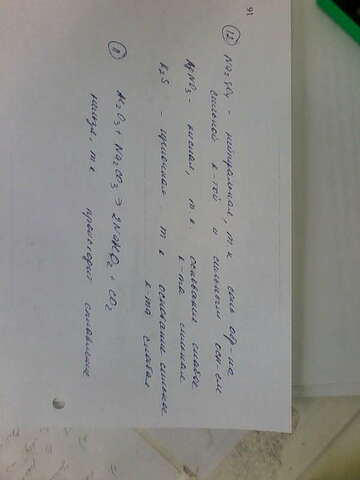 91
12 Na2SO4 - нейтральная, т.к. соль обр-на
сильной к-той и сильным осн-ем
AgNO3 - кислая, т.к. основание слабое
к-та сильная
K2S - щелочная т к основание сильное
к-та слабая
8 Al2O3 + Na2CO3 → 2NaAlO2 + CO2
нельзя, т.к. происходит сплавление